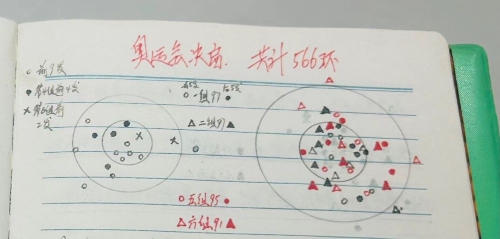 奥运会决赛. 共计566环
○ 前9发
前5发 后5发
○ 一组97 ●
● 第4组前4发
× 第6组前
二发
△ 二组91 ▲
○ 五组95 ●
△ 六组91 ▲